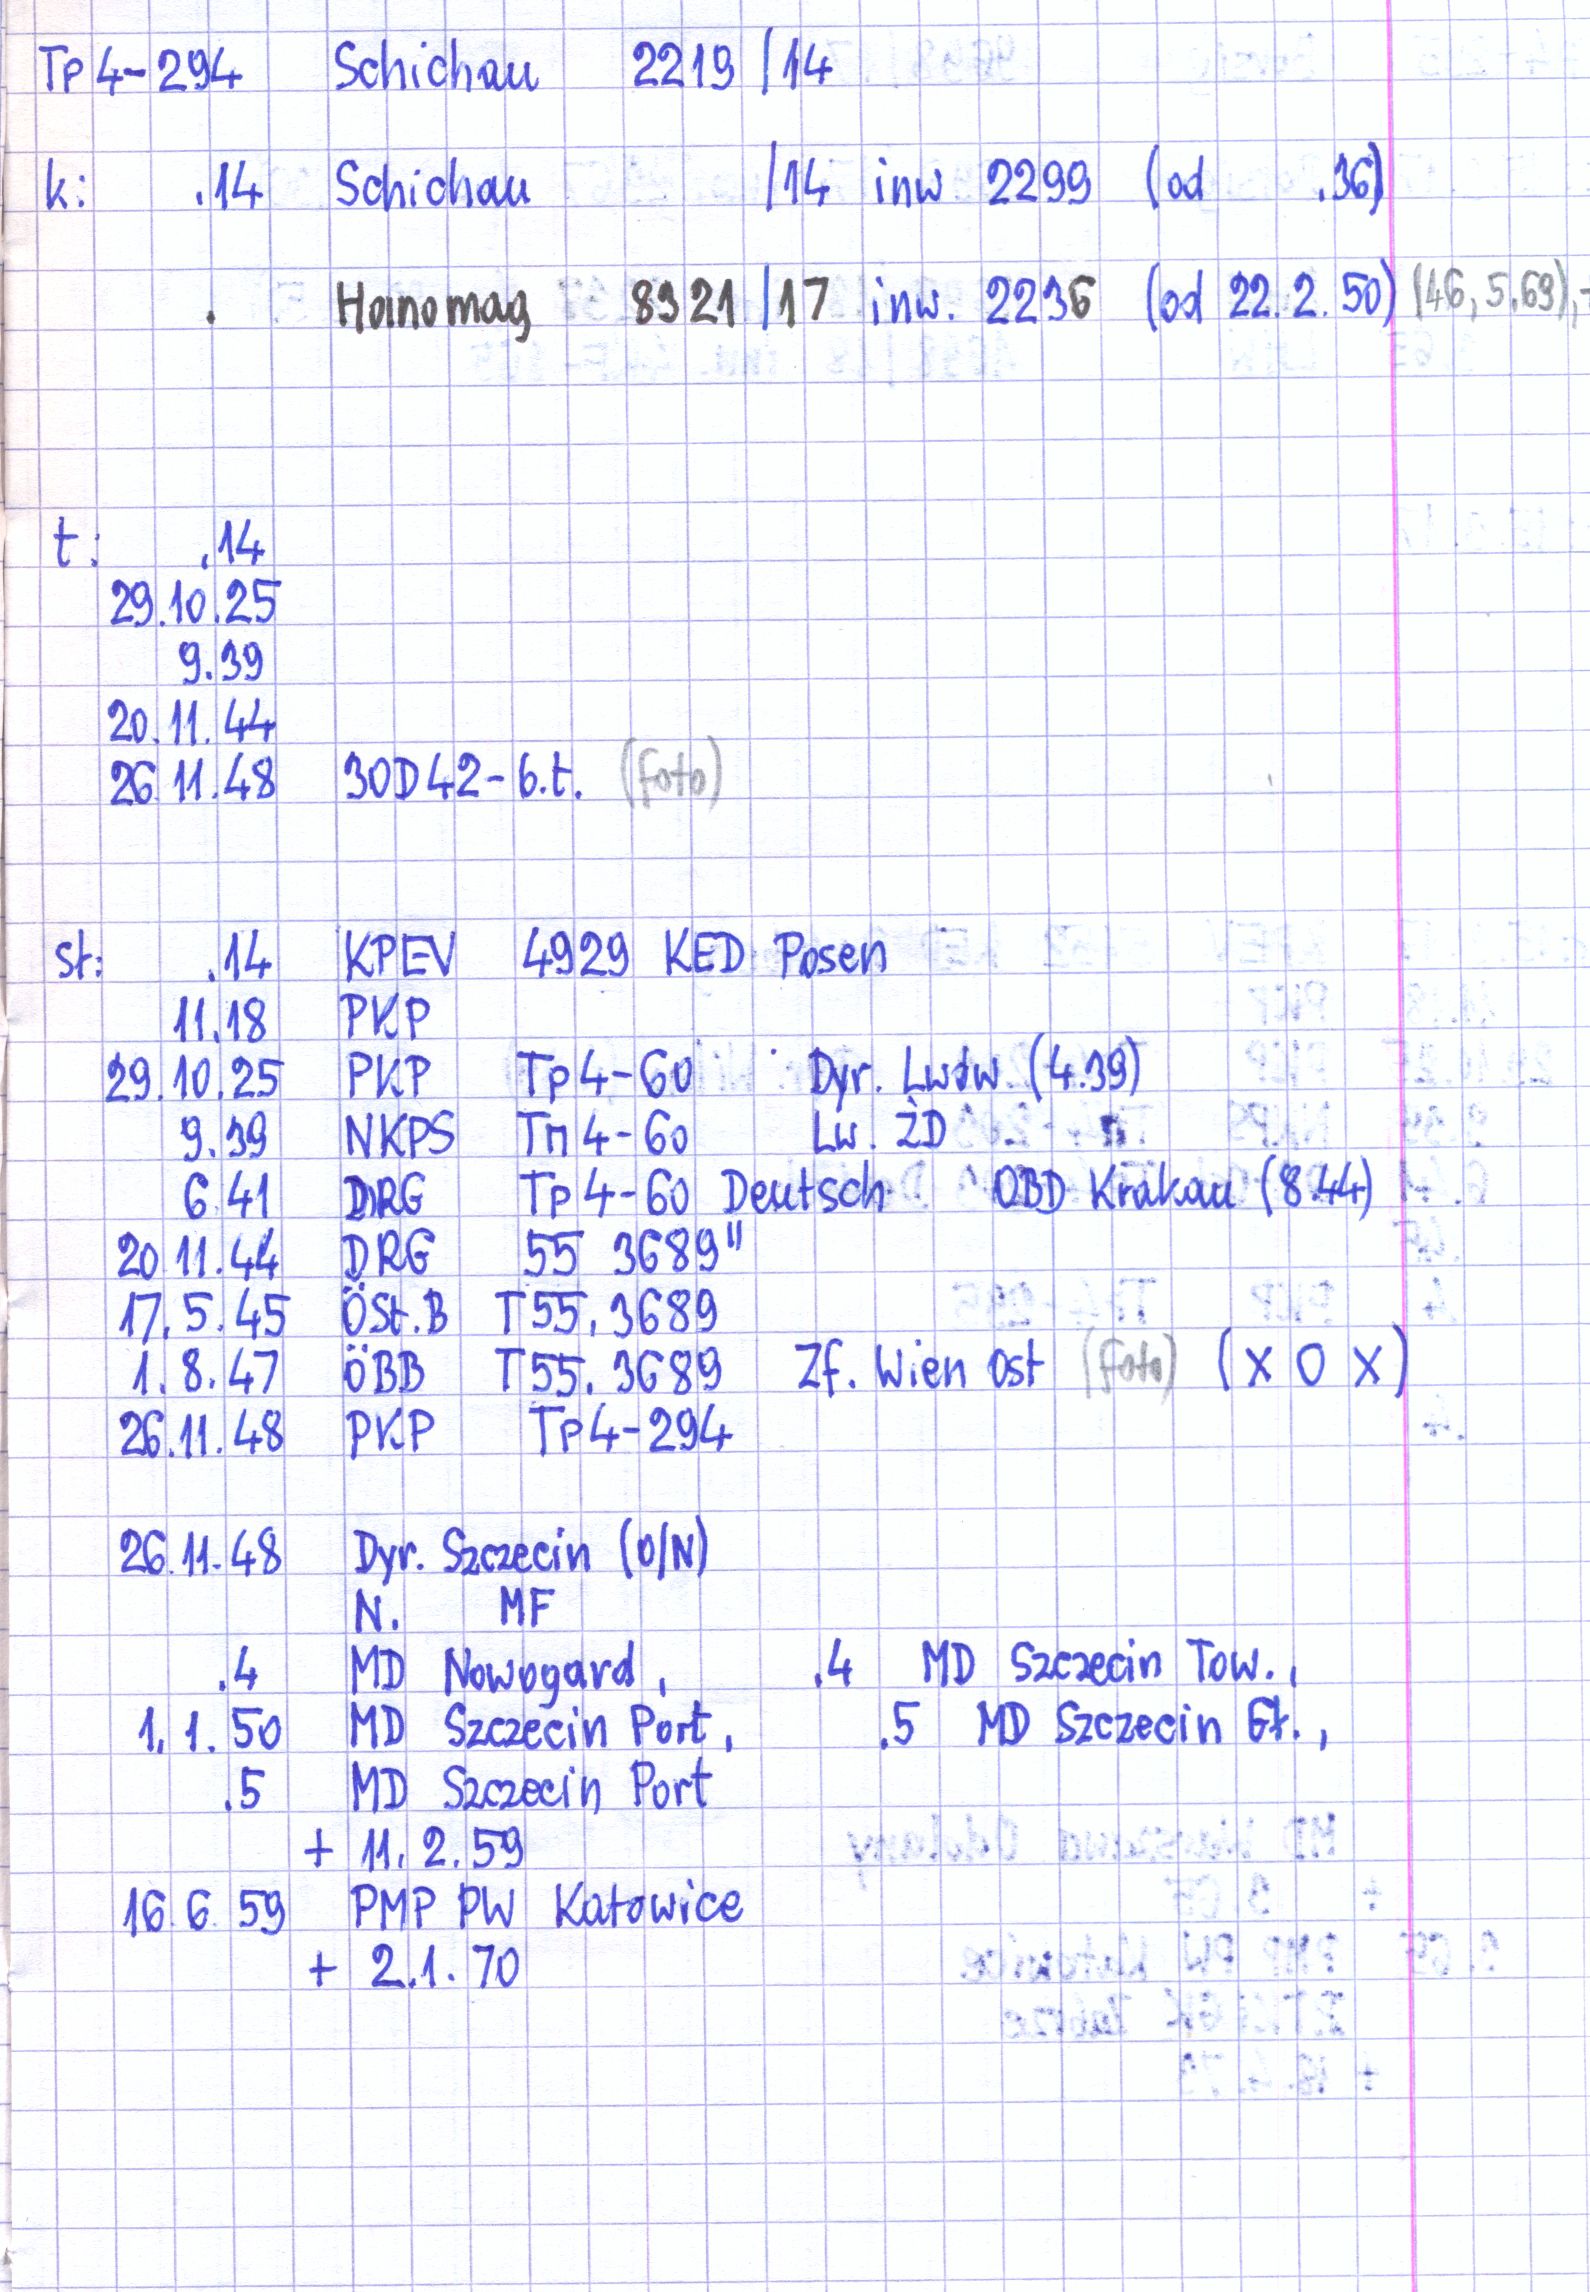 Tp4-294 Schichau 2219 /14
k: .14 Schichau /14 inw 2299 (od .36)
. Hanomag 8321 /17 inw. 2236 (od 22.2.50) (46, 5.69),
t: .14
29.10.25
9.39
20.11.44
26.11.48 30D42-6.t. (foto)
st: .14 KPEV 4929 KED Posen
11.18 PKP
29.10.25 PKP Tp4-60 Dyr. Lwów (4.39)
9.39 NKPS Tп4-60 Lw. ŻD
6.41 DRG Tp4-60 Deutsch OBD Krakau (8.44)
20.11.44 DRG 55 3689"
17.5.45 ÖSt.B T55.3689
1.8.47 ÖBB T55.3689 Zf. Wien Ost (foto) (X O X)
26.11.48 PKP Tp4-294
26.11.48 Dyr. Szczecin (O/N)
N. MF
.4 MD Nowogard, .4 MD Szczecin Tow.,
1.1.50 MD Szczecin Port, .5 MD Szczecin Gł.,
.5 MD Szczecin Port
+ 11.2.59
16.6.59 PMP PW Katowice
+ 2.1.70